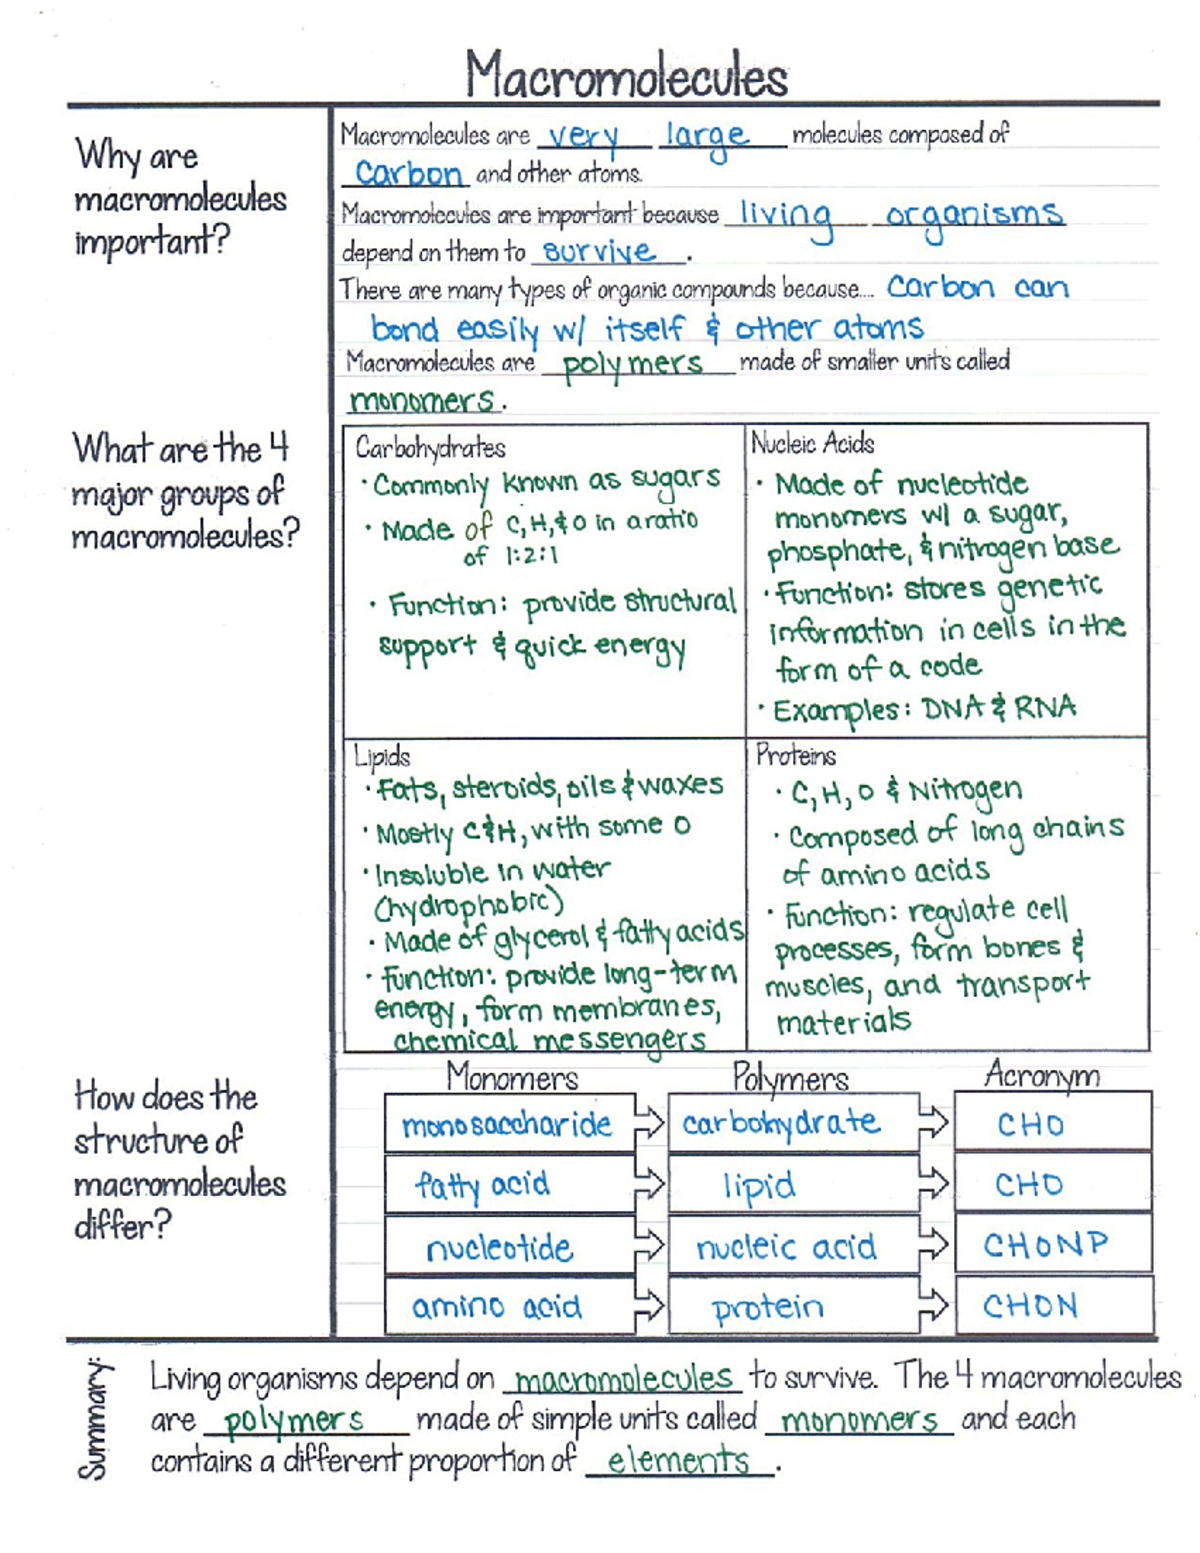 Macromolecules
Why are
macromolecules
important?
Macromolecules are very large molecules composed of
carbon and other atoms.
Macromolecules are important because living organisms
depend on them to survive.
There are many types of organic compounds because... Carbon can
bond easily w/ itself & other atoms
Macromolecules are polymers made of smaller units called
monomers.
What are the 4
major groups of
macromolecules?
Carbohydrates
• Commonly known as sugars
• Made of C, H, & O in a ratio
of 1:2:1
• Function: provide structural
support & quick energy
Nucleic Acids
• Made of nucleotide
monomers w/ a sugar,
phosphate, & nitrogen base
• Function: stores genetic
information in cells in the
form of a code
• Examples: DNA & RNA
Lipids
• Fats, steroids, oils & waxes
• Mostly C & H, with some O
• Insoluble in water
(hydrophobic)
• Made of glycerol & fatty acids
• Function: provide long-term
energy, form membranes,
chemical messengers
Proteins
• C, H, O & Nitrogen
• Composed of long chains
of amino acids
• Function: regulate cell
processes, form bones &
muscles, and transport
materials
How does the
structure of
macromolecules
differ?
Monomers Polymers Acronym
monosaccharide carbohydrate CHO
fatty acid lipid CHO
nucleotide nucleic acid CHONP
amino acid protein CHON
Summary:
Living organisms depend on macromolecules to survive. The 4 macromolecules
are polymers made of simple units called monomers and each
contains a different proportion of elements.